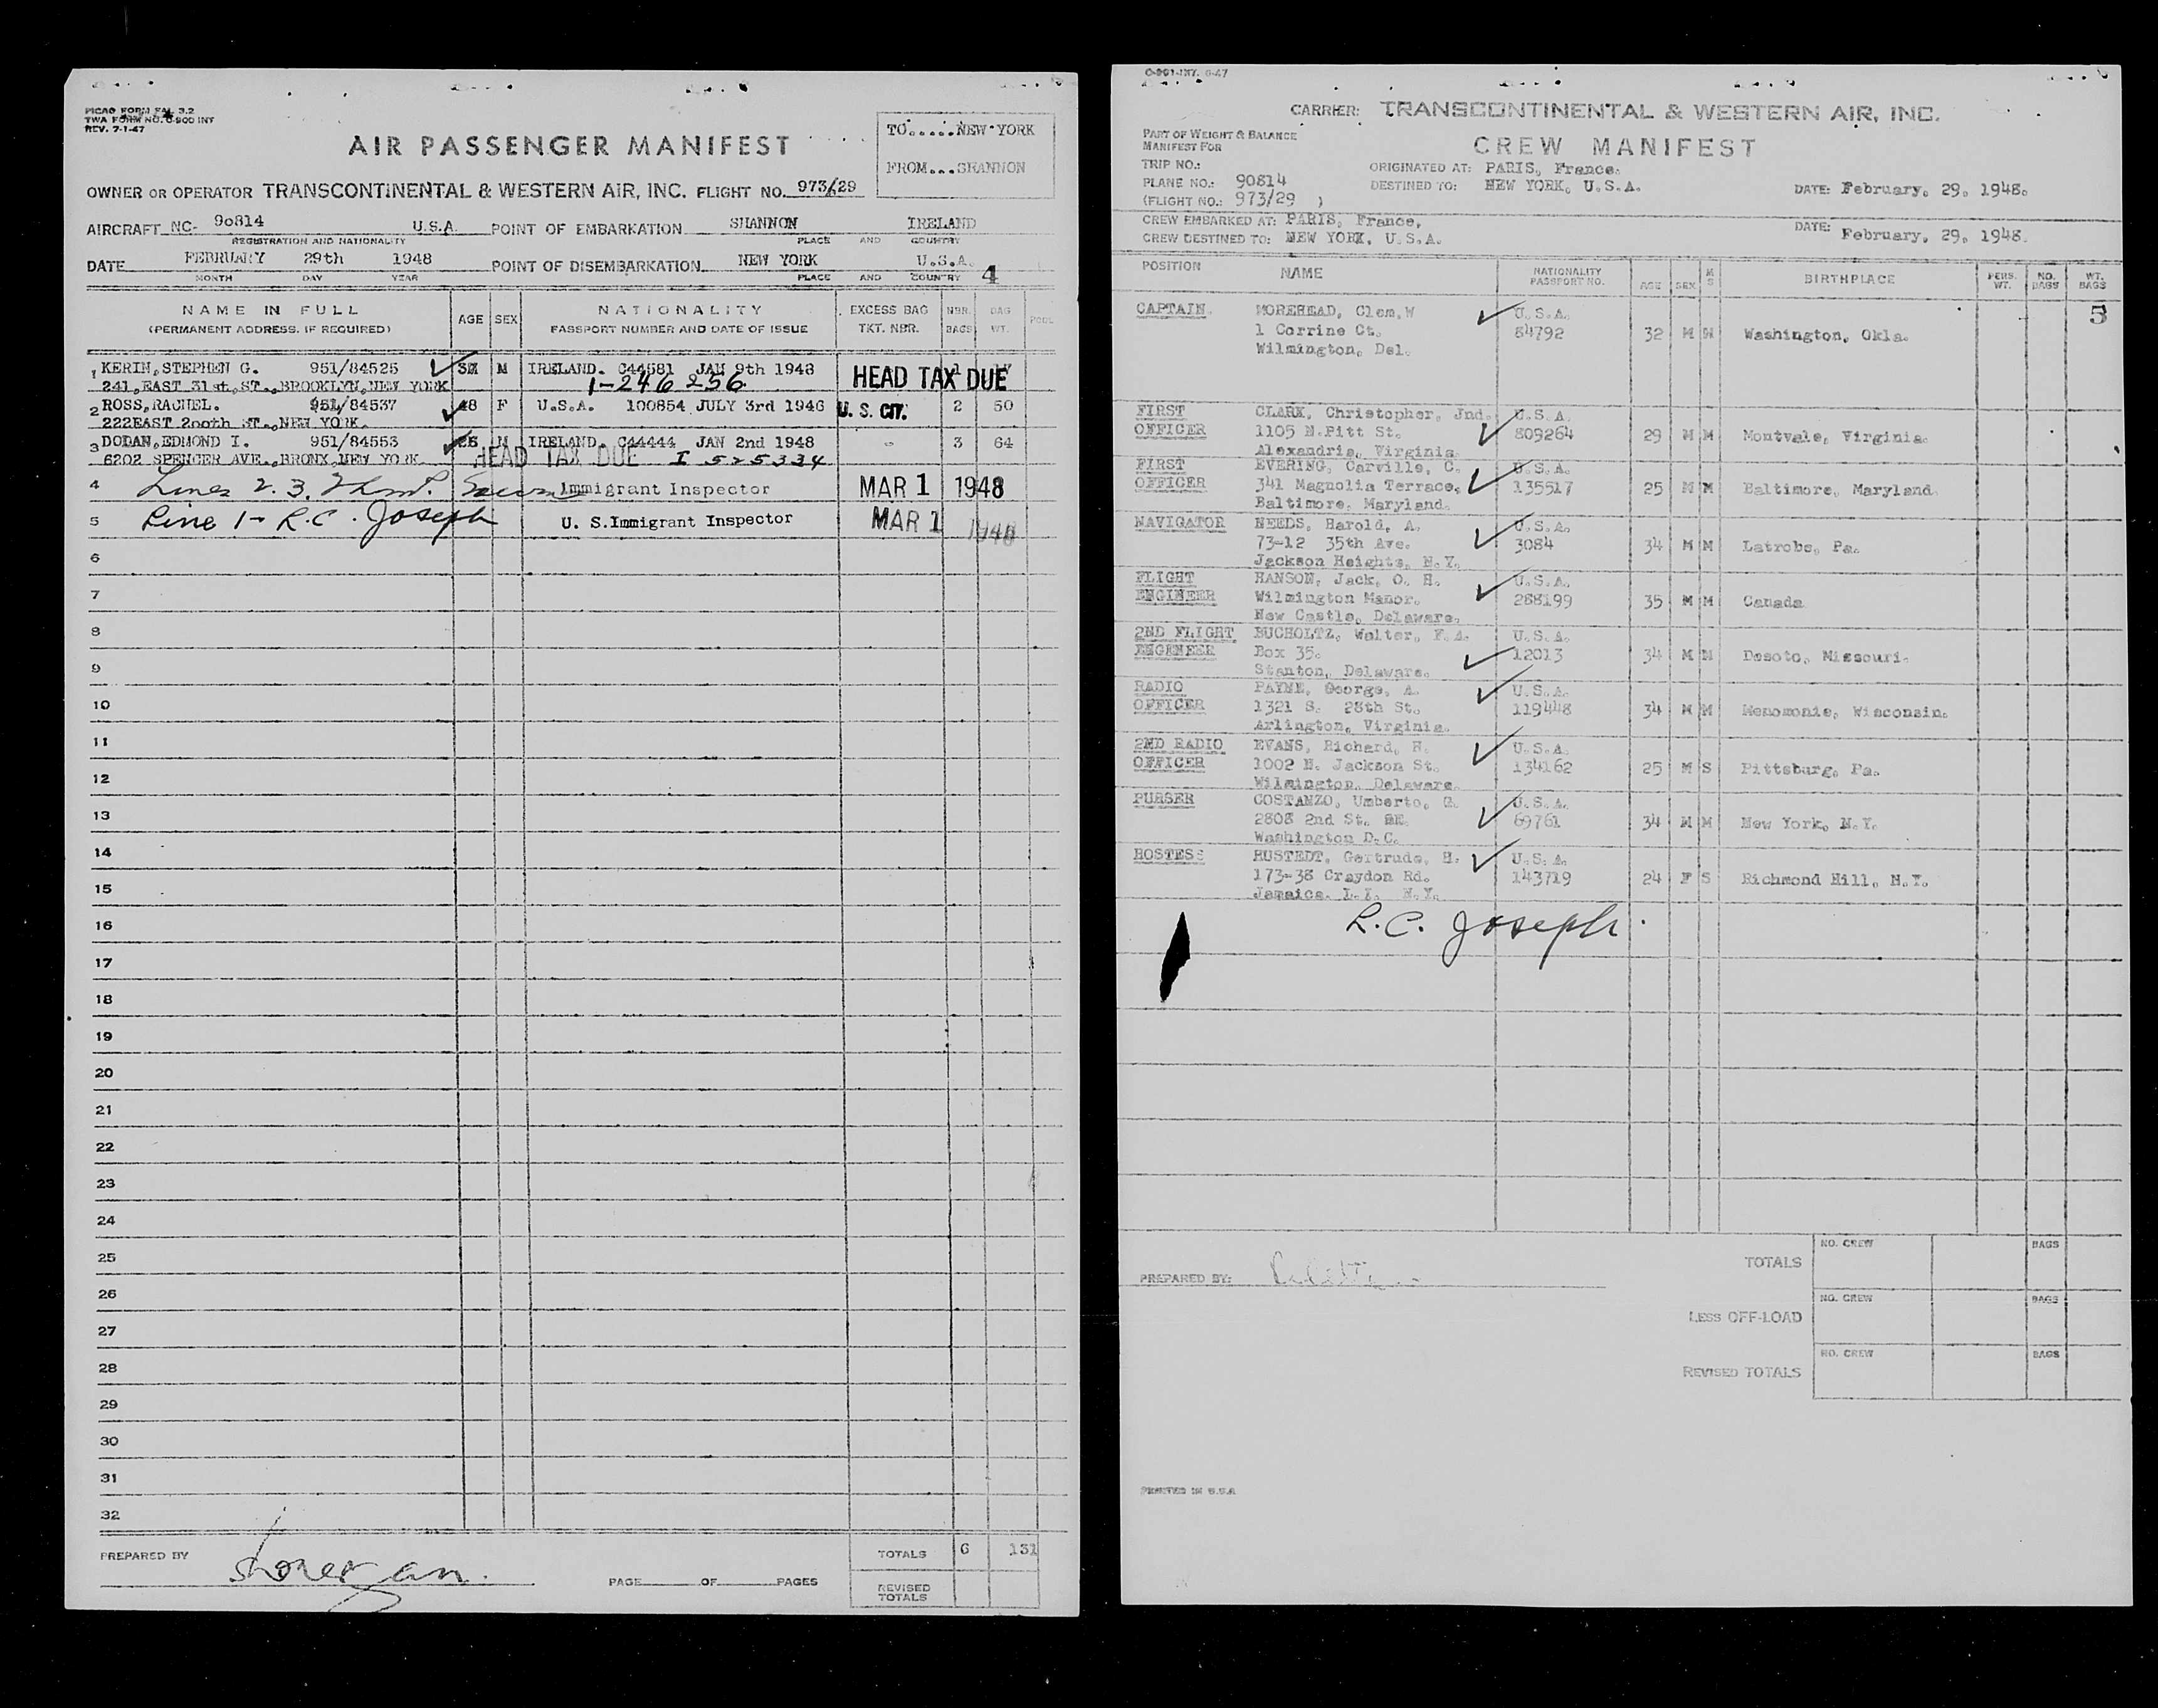 PICAO FORM FAL 3.2
TWA FORM NO. O-900 INT
REV. 7-1-47
AIR PASSENGER MANIFEST
TO.....NEW YORK
FROM...SHANNON
OWNER OR OPERATOR TRANSCONTINENTAL & WESTERN AIR, INC. FLIGHT NO. 973/29
AIRCRAFT NC- 90814 U.S.A. POINT OF EMBARKATION SHANNON IRELAND
REGISTRATION AND NATIONALITY PLACE AND COUNTRY
DATE FEBRUARY 29th 1948 POINT OF DISEMBARKATION NEW YORK U.S.A. 4
MONTH DAY YEAR PLACE AND COUNTRY
NAME IN FULL AGE SEX NATIONALITY EXCESS BAG NBR. BAG POOL
(PERMANENT ADDRESS, IF REQUIRED) PASSPORT NUMBER AND DATE OF ISSUE TKT. NBR. BAGS WT.
1 KERIN, STEPHEN G. 951/84525 M IRELAND. C44581 JAN 9th 1948 HEAD TAX DUE 1 17
241, EAST 31st, ST., BROOKLYN, NEW YORK 1-246256
2 ROSS, RACHEL. 951/84537 48 F U.S.A. 100854 JULY 3rd 1946 U. S. CIT. 2 50
222EAST 200th ST., NEW YORK.
3 DODAN, EDMOND I. 951/84553 M IRELAND. C44444 JAN 2nd 1948 - 3 64
6202 SPENCER AVE., BRONX, NEW YORK HEAD TAX DUE I 525334
4 Lines 2. 3. Immigrant Inspector MAR 1 1948
5 Line 1 - R.C. Joseph U. S. Immigrant Inspector MAR 1 1948
6
7
8
9
10
11
12
13
14
15
16
17
18
19
20
21
22
23
24
25
26
27
28
29
30
31
32
PREPARED BY TOTALS 6 131
PAGE OF PAGES REVISED TOTALS
O-901-INT. 6-47
CARRIER: TRANSCONTINENTAL & WESTERN AIR, INC.
PART OF WEIGHT & BALANCE
MANIFEST FOR
CREW MANIFEST
TRIP NO.: ORIGINATED AT: PARIS, France.
PLANE NO.: 90814 DESTINED TO: NEW YORK, U.S.A. DATE: February. 29. 1948.
(FLIGHT NO.: 973/29 )
CREW EMBARKED AT: PARIS, France, DATE: February. 29. 1948.
CREW DESTINED TO: NEW YORK, U.S.A.
POSITION NAME NATIONALITY PASSPORT NO. AGE SEX M S BIRTHPLACE PERS. WT. NO. BAGS WT. BAGS
5
CAPTAIN. MOREHEAD, Clem, W U.S.A.
1 Corrine Ct. 84792 32 M M Washington, Okla.
Wilmington, Del.
FIRST CLARK, Christopher, Jnd. U.S.A.
OFFICER 1105 N.Pitt St. 809264 29 M M Montvale, Virginia.
Alexandria, Virginia.
FIRST EVERING, Carville, C. U.S.A.
OFFICER 341 Magnolia Terrace, 135517 25 M M Baltimore, Maryland.
Baltimore, Maryland.
NAVIGATOR NEEDS, Harold, A. U.S.A.
73-12 35th Ave. 3084 34 M M Latrobe, Pa.
Jackson Heights, N.Y.
FLIGHT HANSON, Jack, O. H. U.S.A.
ENGINEER Wilmington Manor. 288199 35 M M Canada
New Castle, Delaware.
2ND FLIGHT BUCHOLTZ, Walter, F.A. U.S.A.
ENGINEER Box 35. 12013 34 M M Desoto, Missouri.
Stanton, Delaware.
RADIO PAYNE, George, A. U.S.A.
OFFICER 1321 S. 28th St. 119448 34 M M Menomonie, Wisconsin.
Arlington, Virginia.
2ND RADIO EVANS, Richard, H. U.S.A.
OFFICER 1002 N. Jackson St. 134162 25 M S Pittsburg, Pa.
Wilmington, Delaware.
PURSER COSTANZO, Umberto, G. U.S.A.
2808 2nd St. SE. 69761 34 M M New York, N.Y.
Washington D.C.
HOSTESS HUSTEDT, Gertrude, H. U.S.A.
173-38 Craydon Rd. 143719 24 F S Richmond Hill, N.Y.
Jamaica. L.I. N.Y.
R.C. Joseph.
PREPARED BY:
TOTALS NO. CREW BAGS
LESS OFF-LOAD NO. CREW BAGS
REVISED TOTALS NO. CREW BAGS
PRINTED IN U.S.A